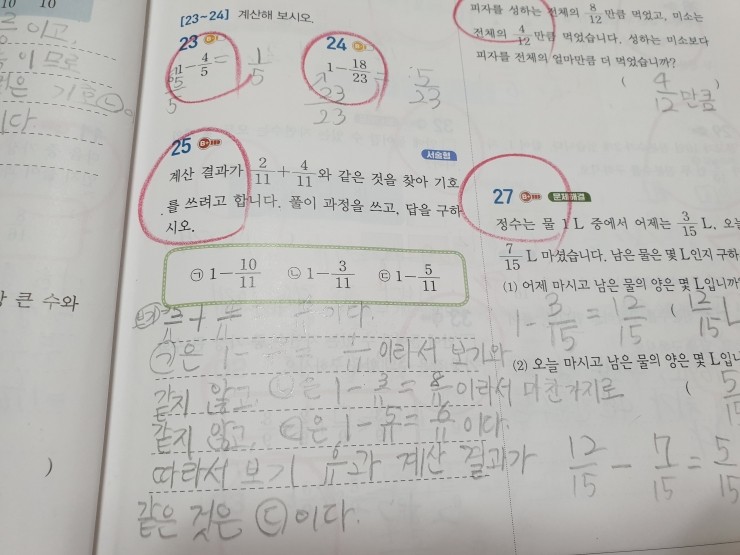 10 10
이고.
이므로
은 기호 ㉡
이다
장 큰 수와
)
[23~24] 계산해 보시오.
23
1-4/5= 1/5
5/5
24
1-18/23= 5/23
23/23
25 서술형
계산 결과가 2/11+4/11와 같은 것을 찾아 기호
를 쓰려고 합니다. 풀이 과정을 쓰고, 답을 구하
시오.
㉠ 1-10/11 ㉡ 1-3/11 ㉢ 1-5/11
이다.
㉠은 1- = 1/11이라서 보기와
같지 않고, ㉡은 1-3/11=8/11이라서 마찬가지로
같지 않고, ㉢은 1-5/11=6/11이다.
따라서 보기 6/11과 계산 결과가
같은 것은 ㉢이다.
피자를 성하는 전체의 8/12만큼 먹었고, 미소는
전체의 4/12만큼 먹었습니다. 성하는 미소보다
피자를 전체의 얼마만큼 더 먹었습니까?
( 4/12만큼 )
27 문제해결
정수는 물 1 L 중에서 어제는 3/15 L, 오늘
7/15 L 마셨습니다. 남은 물은 몇 L인지 구하
(1) 어제 마시고 남은 물의 양은 몇 L입니까
1-3/15=12/15 ( 12/15 L
(2) 오늘 마시고 남은 물의 양은 몇 L입니
( 5/15
12/15-7/15=5/15